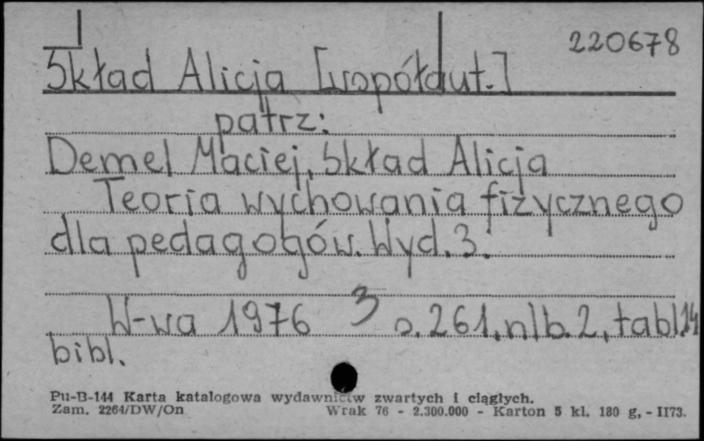 220678
Skład Alicja [współaut.]
patrz:
Demel Maciej, Skład Alicja
Teoria wychowania fizycznego
dla pedagogów. Wyd. 3.
W-wa 1976 3 s. 261, nlb. 2, tabl. 14
bibl.
Pu-B-144 Karta katalogowa wydawnictw zwartych i ciągłych.
Zam. 2264/DW/On Wrak 76 - 2.300.000 - Karton 5 kl. 180 g. - II73.